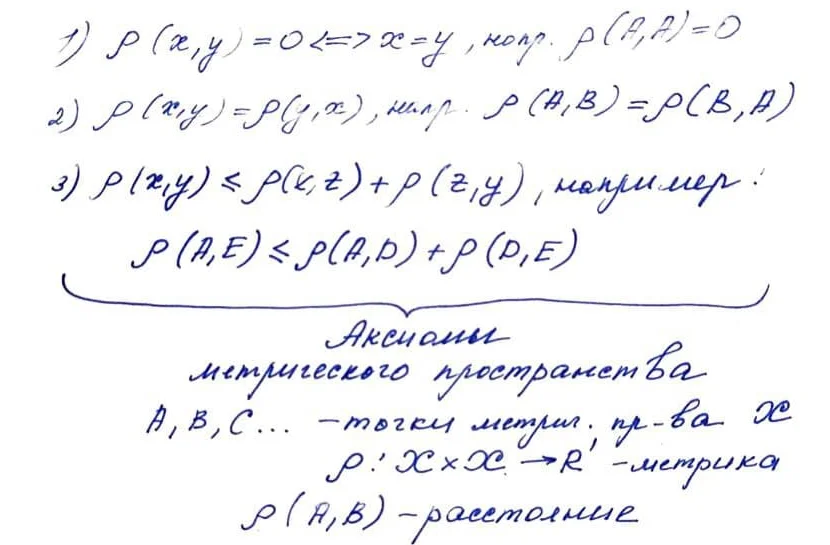 1) ρ(x,y)=0<=>x=y, напр. ρ(A,A)=0
2) ρ(x,y)=ρ(y,x), напр. ρ(A,B)=ρ(B,A)
3) ρ(x,y)≤ρ(x,z)+ρ(z,y), например:
ρ(A,E)≤ρ(A,D)+ρ(D,E)
Аксиомы
метрического пространства
A, B, C... – точки метрич. пр-ва X
ρ: X×X→R¹ – метрика
ρ(A,B) – расстояние